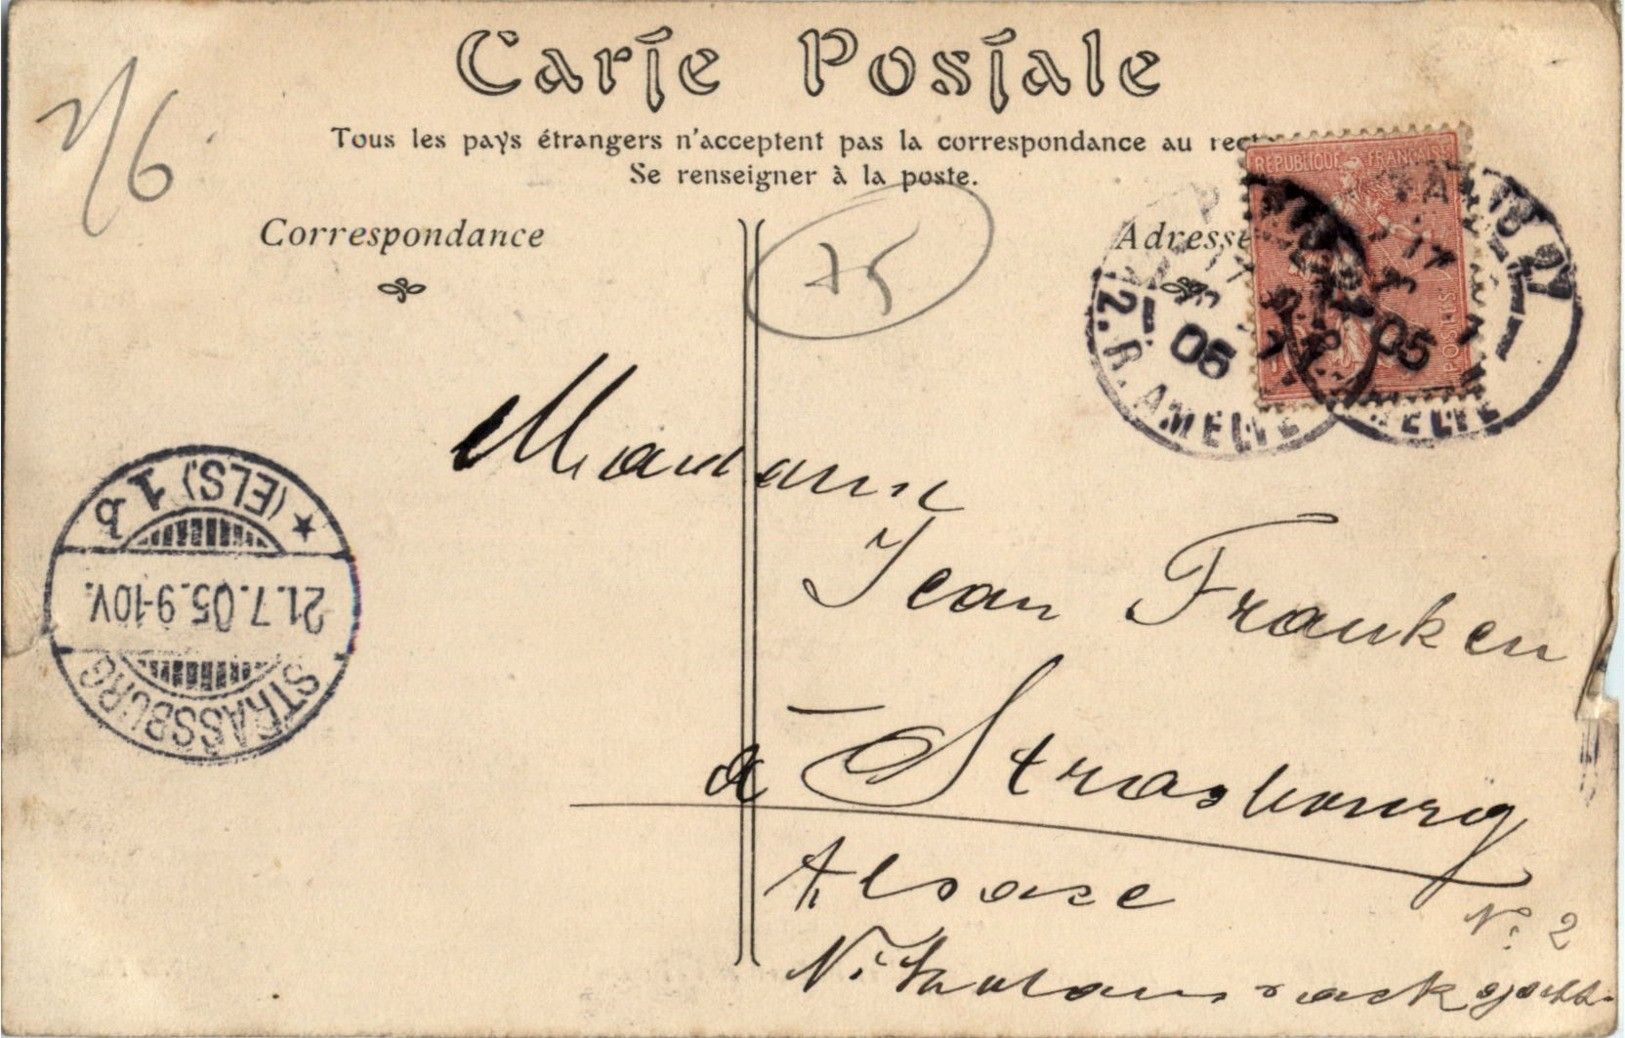 Carte Postale
Tous les pays étrangers n'acceptent pas la correspondance au recto
Se renseigner à la poste.
Correspondance
Adresse
75
REPUBLIQUE FRANÇAISE
POSTES
PARIS
17
05
12. R. AMELIE
PARIS
17
05
AMELIE
STRASSBURG
21.7.05.9-10V.
(ELS) 1 b
Madame
Jean Franken
à Strasbourg
Alsace
No 2